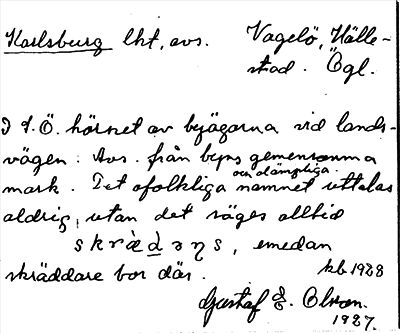 Karlsburg lht, avs. Vagelö, Hälle-
stad. Ögl.
I S.Ö. hörnet av byägorna vid lands-
vägen. Avs. från byns gemensamma
mark. Det ofolkliga och olämpliga namnet uttalas
aldrig, utan det säges alltid
skrædəɳs, emedan
skräddare bor där. kb 1928
Gustaf E. Olson.
1927.